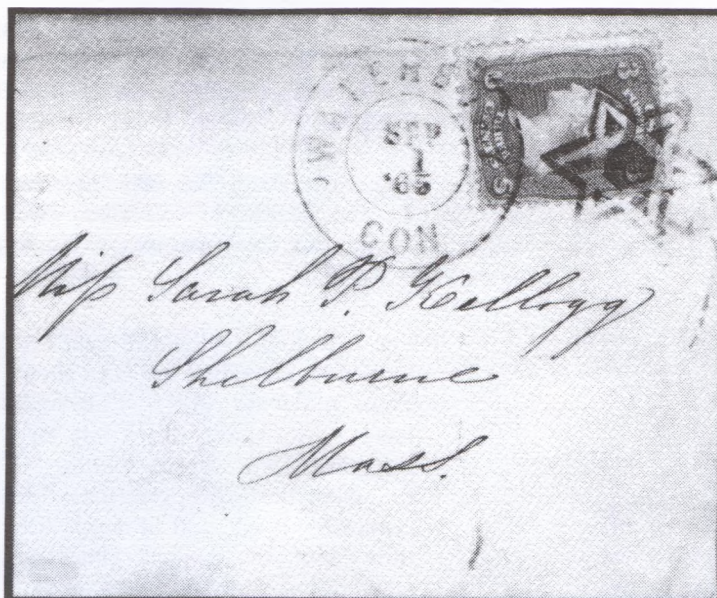 SEP
1
'65
CON
3
3
Miss Sarah P. Kellogg
Shelburne
Mass.